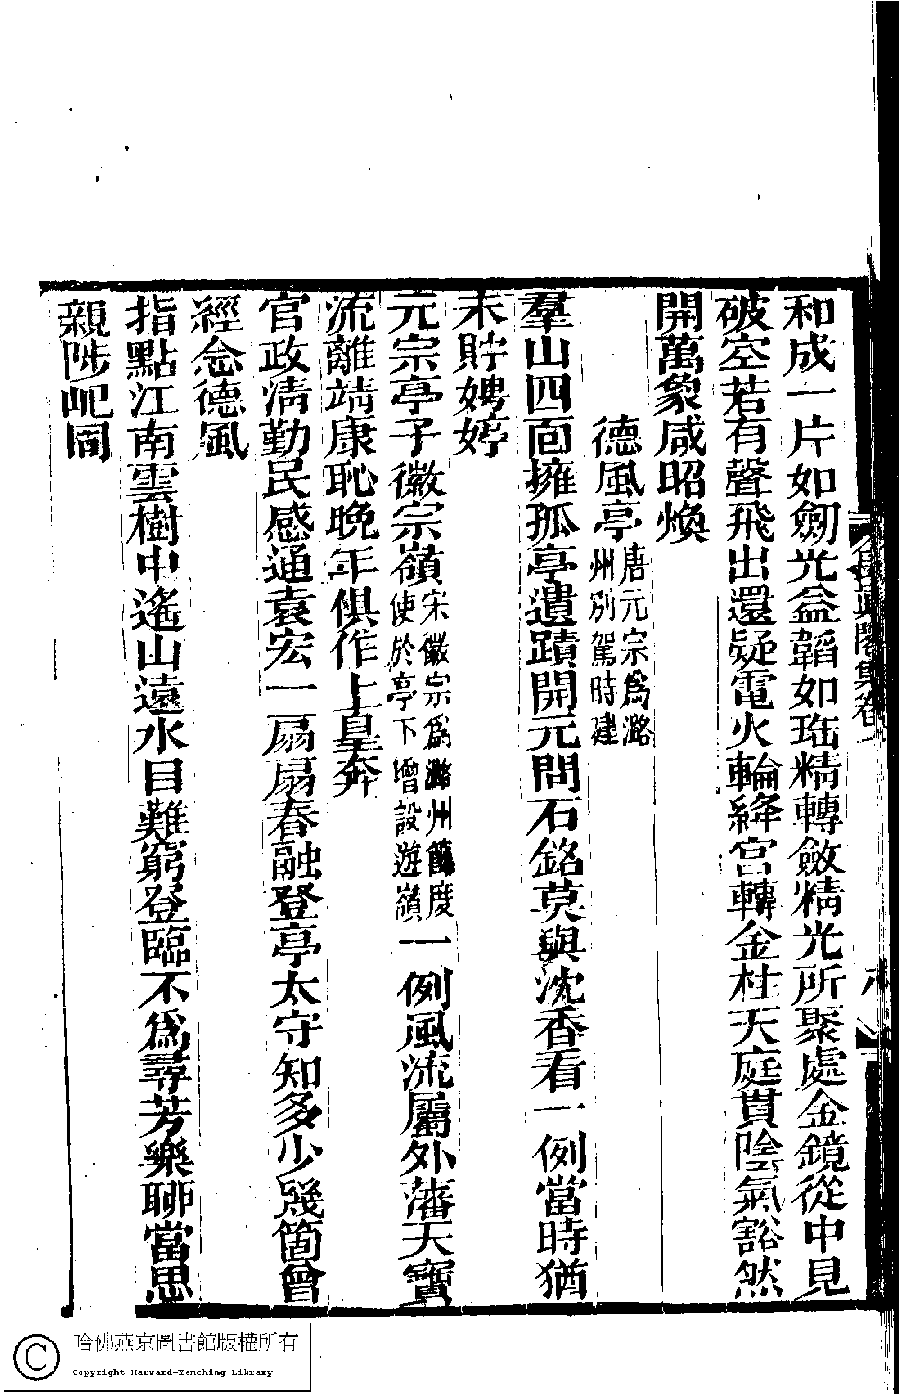 和成一片如劒光益韜如珤精轉斂精光所聚處金鏡從中見
破空若有聲飛出還疑電火輪絳宮轉金柱天庭貫陰氣豁然
開萬象咸昭煥
德風亭唐元宗爲潞州別駕時建
羣山四面擁孤亭遺蹟開元問石銘莫與沈香看一例當時猶
未貯娉婷
元宗亭子徽宗嶺宋徽宗爲潞州節度使於亭下增設遊嶺一例風流屬外藩天寶
流離靖康恥晚年俱作上皇奔
官政淸勤民感通袁宏一扇扇春融登亭太守知多少幾箇曾
經念德風
指點江南雲樹中遙山遠水目難窮登臨不爲尋芳樂聊當思
親陟屺同
哈佛燕京圖書館版權所有
Copyright Harvard-Yenching Library